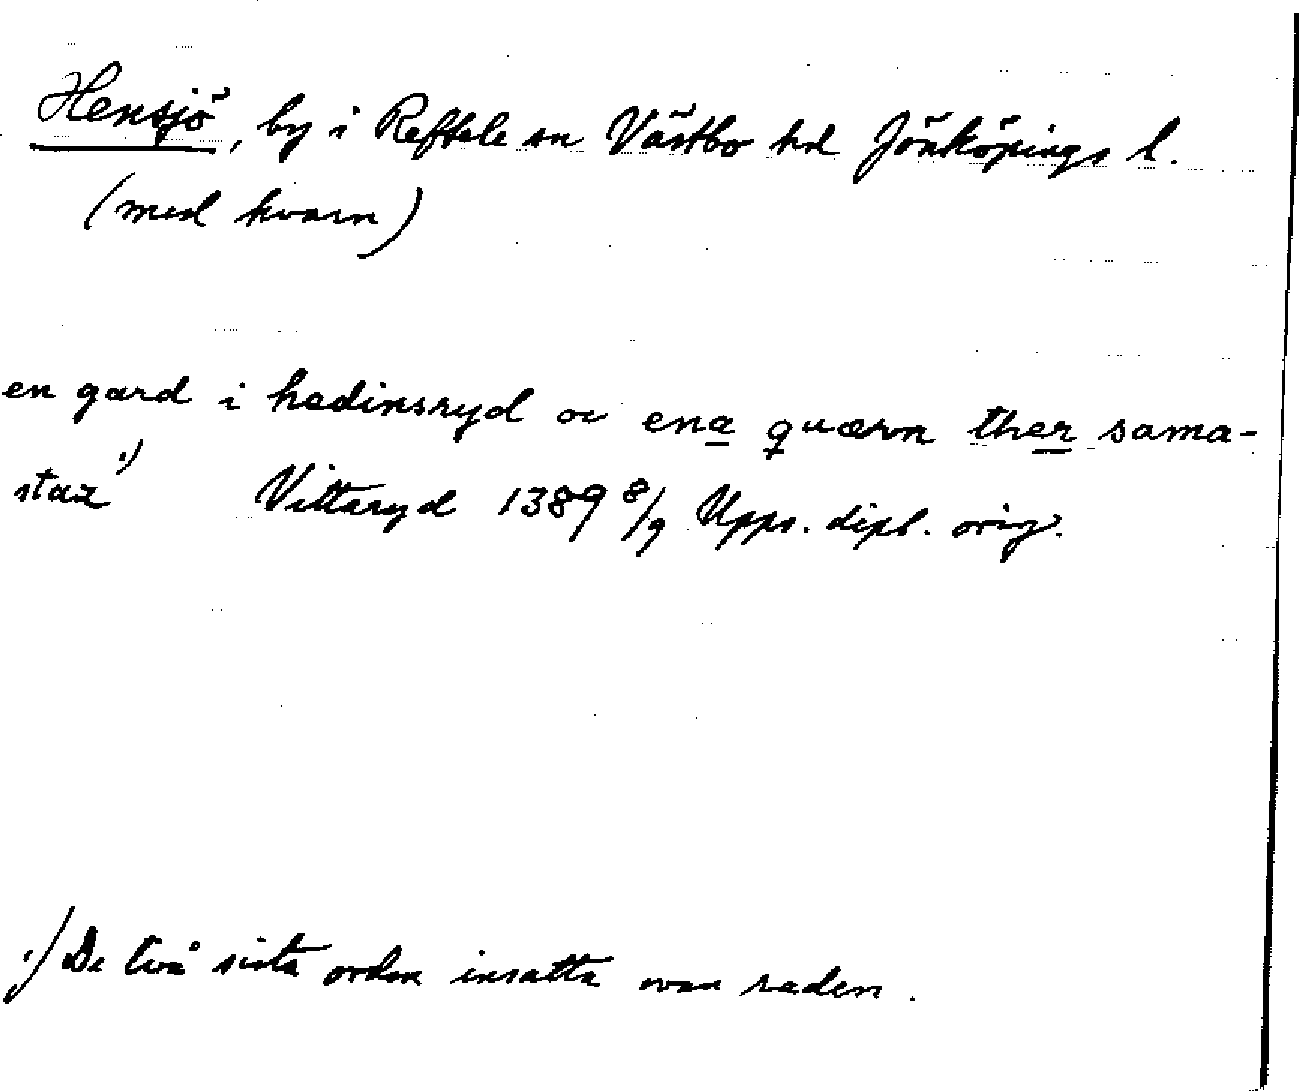 Hensjö, by i Reftele sn Västbo hd Jönköpings l.
(med kvarn)
en gard i hedinsryd oc ena quærn ther sama-
staz 1)  Vittaryd 1389 8/9 Upps. dipl. orig.
1) De två sista orden insatta ovan raden.